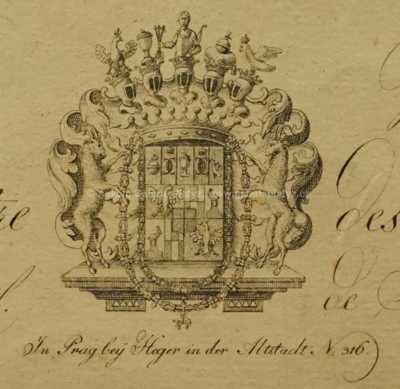 des
de
In Prag beÿ Heger in der Altstadt N. 316.